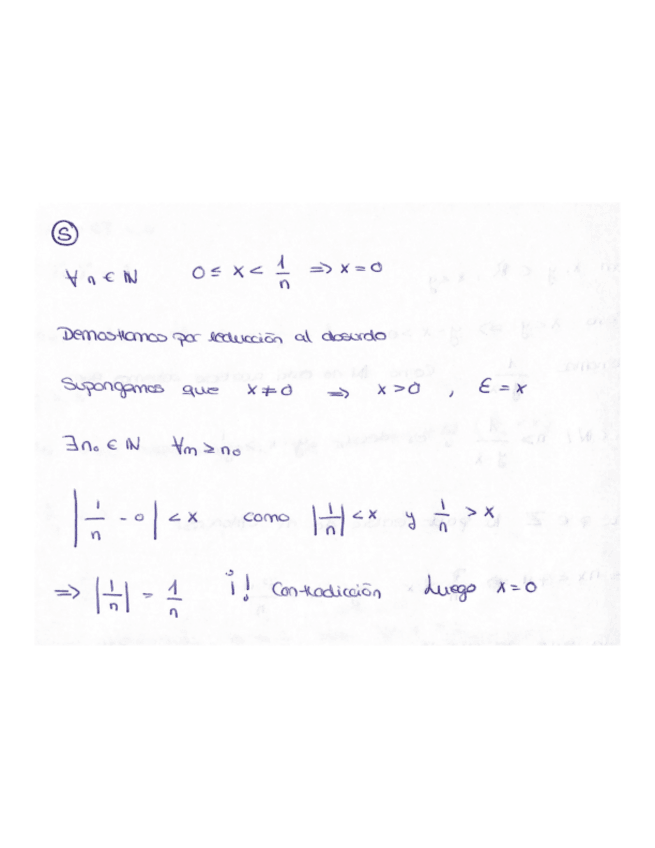 ⑤
∀ n ∈ ℕ 0 ≤ x < 1/n ⇒ x = 0
Demostramos por reducción al absurdo
Supongamos que x ≠ 0 ⇒ x > 0 , ε = x
∃ n₀ ∈ ℕ ∀m ≥ n₀
|1/n - 0| < x como |1/n| < x y 1/n > x
⇒ |1/n| = 1/n ¡! Contradicción Luego x = 0